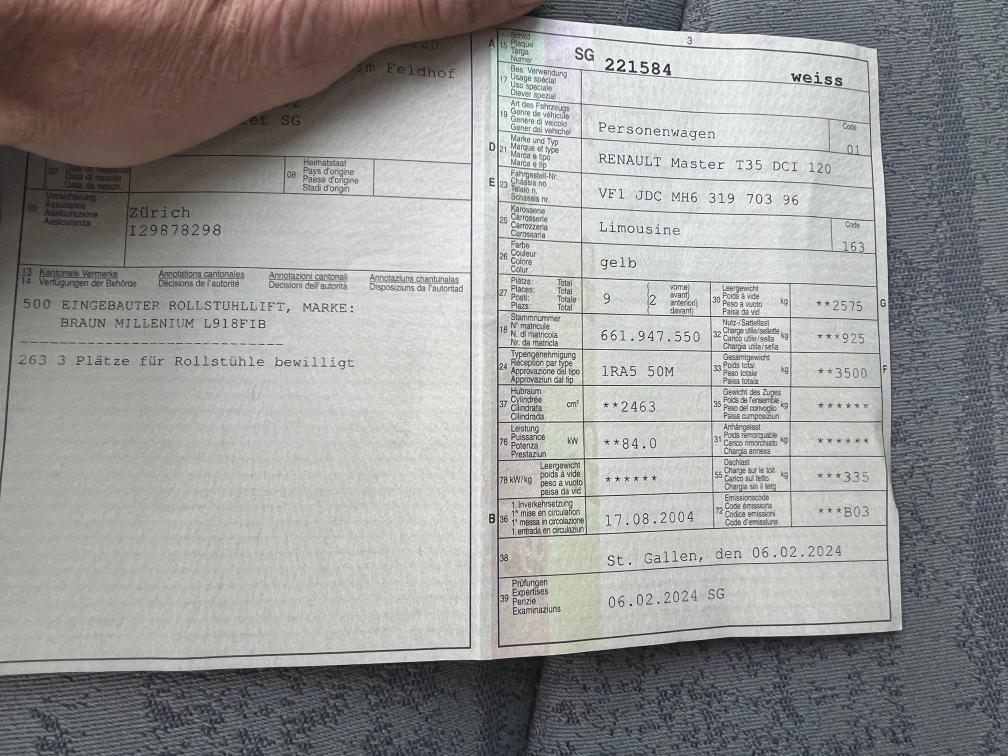 m Feldhof
et SG
07
Data di nascita
Data da nasch.
08
Heimatstaat
Pays d'origine
Paese d'origine
Stadi d'origin
09
Versicherung
Assurance
Assicurazione
Assicuranza
Zürich
I29878298
13 Kantonale Vermerke
14 Verfügungen der Behörde
Annotations cantonales
Décisions de l'autorité
Annotazioni cantonali
Decisioni dell'autorità
Annotaziuns chantunalas
Disposiziuns da l'autoritad
500 EINGEBAUTER ROLLSTUHLLIFT, MARKE:
BRAUN MILLENIUM L918FIB
263 3 Plätze für Rollstühle bewilligt
3
A 15
Schild
Plaque
Targa
Numer
SG 221584 weiss
17
Bes. Verwendung
Usage spécial
Uso speciale
Diever spezial
19
Art des Fahrzeugs
Genre de véhicule
Genere di veicolo
Gener dal vehichel
Personenwagen
Code
01
D 21
Marke und Typ
Marque et type
Marca e tipo
Marca e tip
RENAULT Master T35 DCI 120
E 23
Fahrgestell-Nr.
Châssis no
Telaio n.
Schassis nr.
VF1 JDC MH6 319 703 96
25
Karosserie
Carrosserie
Carrozzeria
Carossaria
Limousine
Code
163
26
Farbe
Couleur
Colore
Colur
gelb
27
Plätze: Total
Places: Total
Posti: Totale
Plazs: Total
9
2
vorne)
avant)
anteriori)
davant)
30
Leergewicht
Poids à vide
Peso a vuoto
Paisa da vid
kg
**2575
G
18
Stammnummer
N° matricule
N. di matricola
Nr. da matricla
661.947.550
32
Nutz-/Sattellast
Charge utile/sellette
Carico utile/sella
Chargia utila/sella
kg
***925
24
Typengenehmigung
Réception par type
Approvazione del tipo
Approvaziun dal tip
1RA5 50M
33
Gesamtgewicht
Poids total
Peso totale
Paisa totala
kg
**3500
F
37
Hubraum
Cylindrée
Cilindrata
Cilindrada
cm³
**2463
35
Gewicht des Zuges
Poids de l'ensemble
Peso del convoglio
Paisa cumposiziun
kg
******
76
Leistung
Puissance
Potenza
Prestaziun
kW
**84.0
31
Anhängelast
Poids remorquable
Carico rimorchiato
Chargia annexa
kg
******
78 kW/kg
Leergewicht
poids à vide
peso a vuoto
paisa da vid
******
55
Dachlast
Charge sur le toit
Carico sul tetto
Chargia sin il tetg
kg
***335
B 36
1. Inverkehrsetzung
1re mise en circulation
1a messa in circolazione
1. entrada en circulaziun
17.08.2004
72
Emissionscode
Code émissions
Codice emissioni
Code d'emissiuns
***B03
38
St. Gallen, den 06.02.2024
39
Prüfungen
Expertises
Perizie
Examinaziuns
06.02.2024 SG